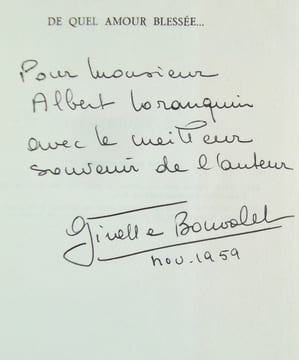 DE QUEL AMOUR BLESSÉE...
Pour Monsieur
Albert Loranquin
avec le meilleur
souvenir de l'auteur
Giselle Bouvalet
nov. 1959